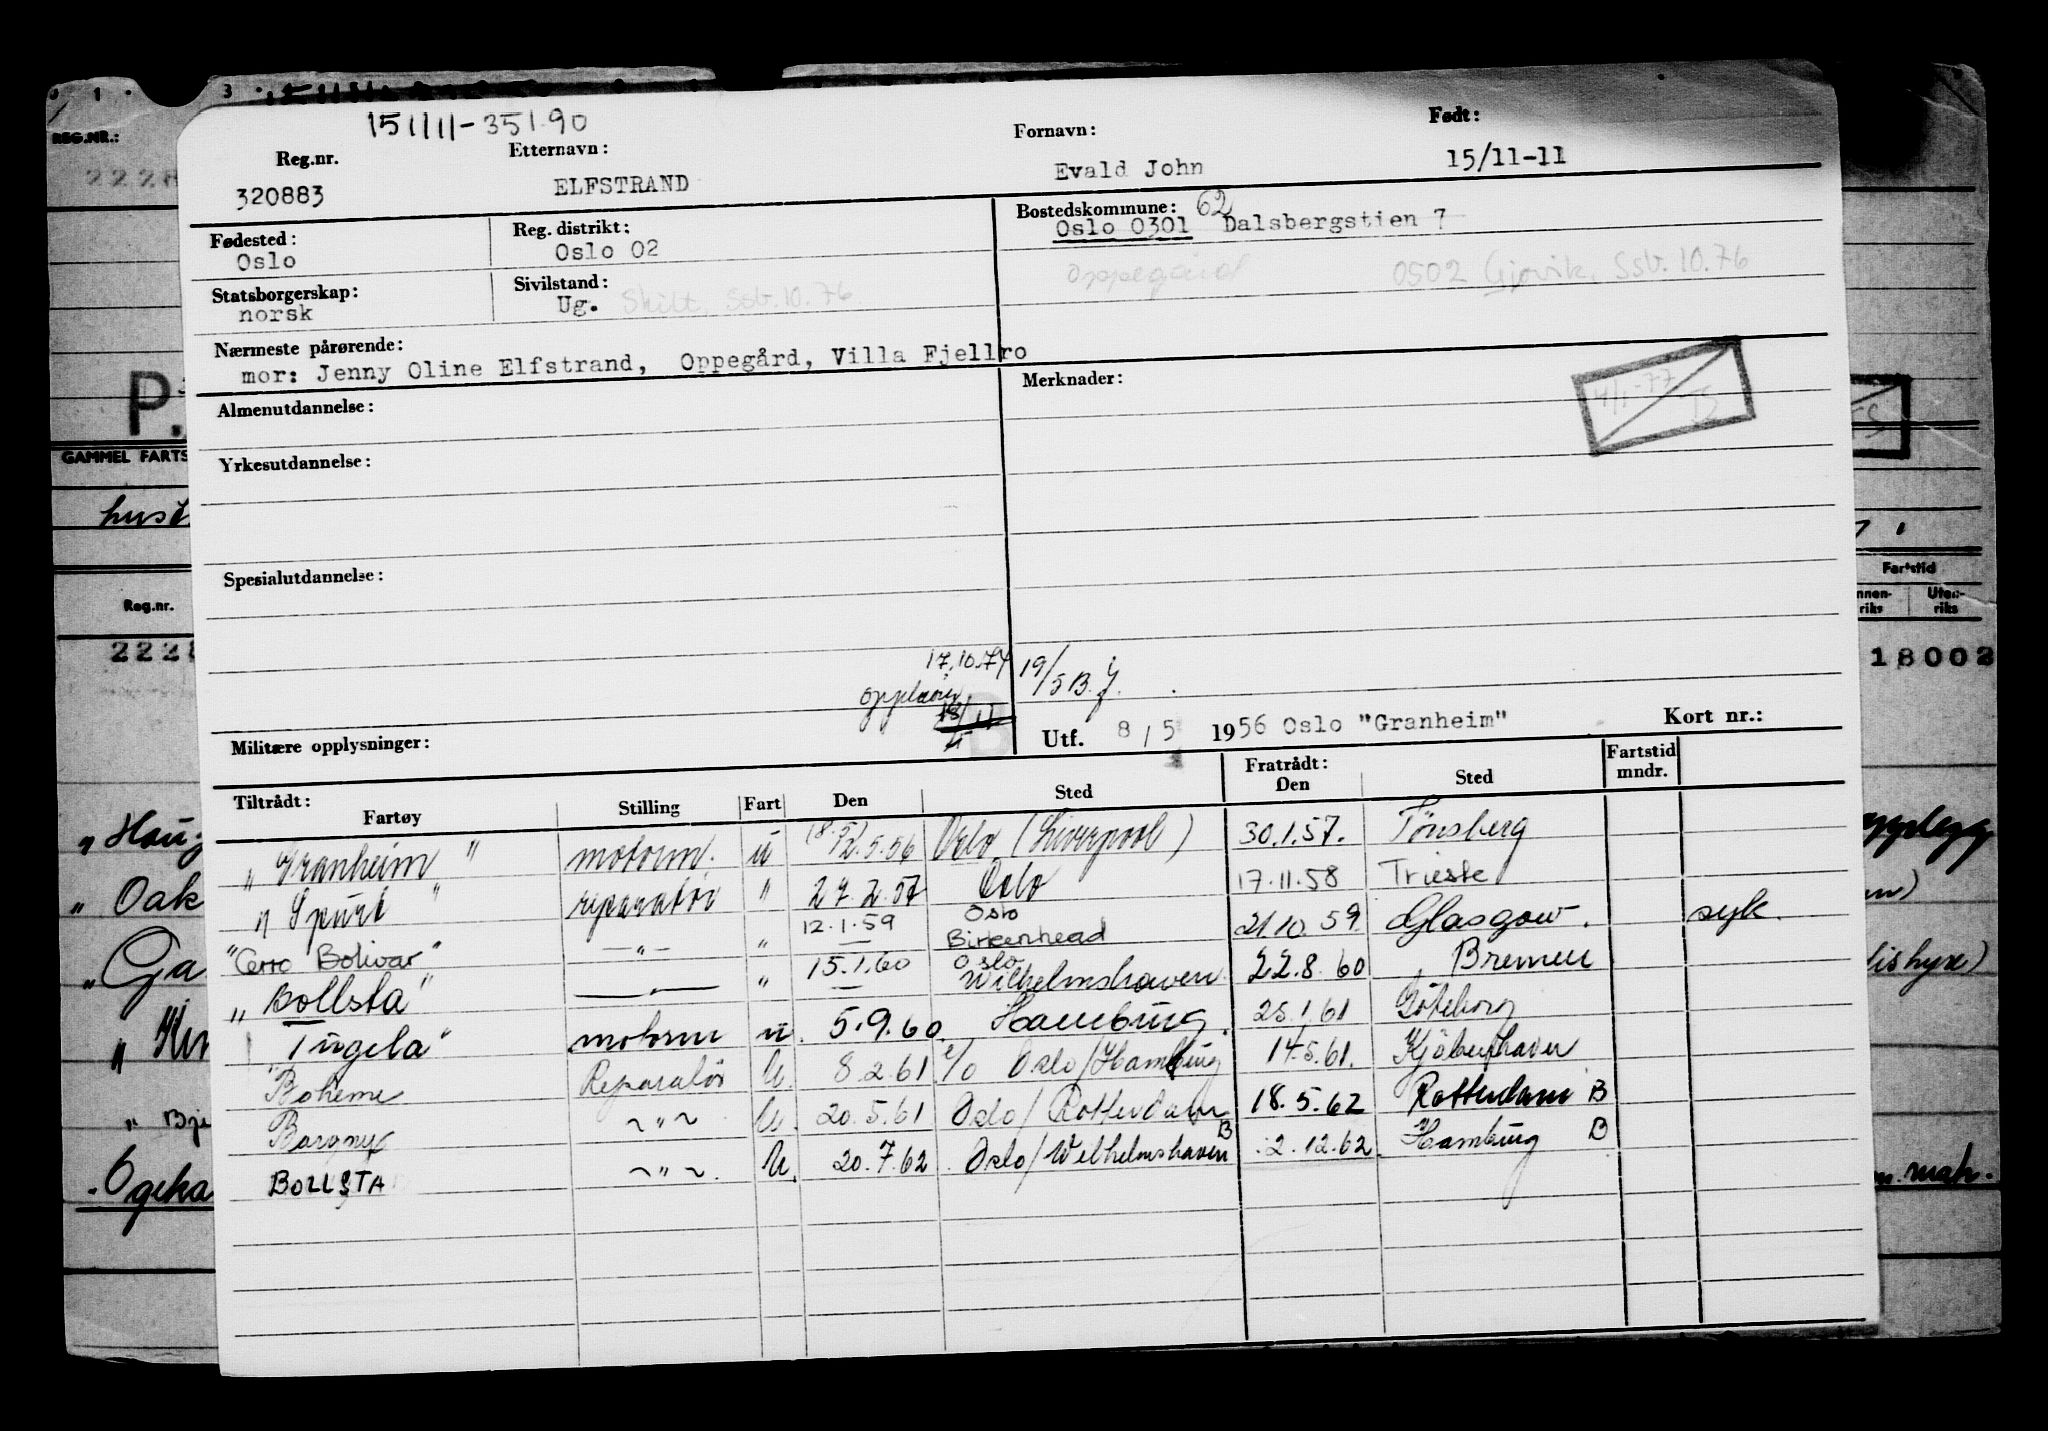 1 3
REG.NR.:
222
P.
GAMMEL FARTS
Reg.nr.
222
" Oak
" Ga
Fartstid
nnen-
riks
Uten-
riks
18002
151111-351.90
Reg.nr. Etternavn: Fornavn: Født:
320883 ELFSTRAND Evald John 15/11-11
Fødested: Reg. distrikt: Bostedskommune: 62
Oslo Oslo 02 Oslo 0301 Dalsbergstien 7
Oppegård 0502 Gjøvik, Ssb. 10.76
Statsborgerskap: Sivilstand:
norsk Ug. Skilt, Ssb. 10.76
Nærmeste pårørende:
mor: Jenny Oline Elfstrand, Oppegård, Villa Fjellro
Almenutdannelse: Merknader:
Yrkesutdannelse:
Spesialutdannelse:
17.10.74 19/5 B.
B
Militære opplysninger: Utf. 8/5 1956 Oslo "Granheim" Kort nr.:
Tiltrådt: Fratrådt: Fartstid
Fartøy Stilling Fart Den Sted Den Sted mndr.
"Granheim" motorm. u 12.5.56 Oslo (Liverpool) 30.1.57. Tønsberg
"Spurt" reparatør " 27.2.57 Oslo 17.11.58 Trieste
"Cerro Bolivar" —"— " 12.1.59 Oslo Birkenhead 21.10.59 Glasgow. syk.
"Bollsta" —"— " 15.1.60 Oslo Wilhelmshaven 22.8.60 Bremen
"Ingela" motorm u. 5.9.60 Hamburg. 25.1.61 Göteborg
Boheme Reparatør U. 8.2.61 Oslo/Hamburg 14.5.61. Kjøbenhaven
Borgny ~"~ U. 20.5.61 Oslo/Rotterdam 18.5.62 Rotterdam B
BOLLSTA ~"~. U. 20.7.62 Oslo/Wilhelmshaven B 2.12.62. Hamburg B